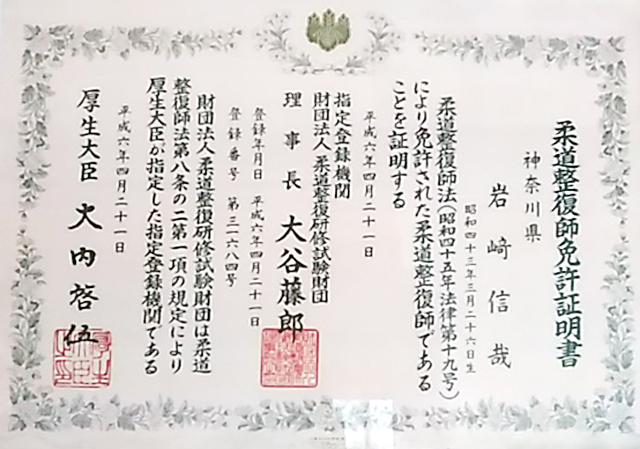 柔道整復師免許証明書
神奈川県
岩﨑信哉
昭和四十三年三月二十六日生
柔道整復師法（昭和四十五年法律第十九号）
により免許された柔道整復師である
ことを証明する
平成六年四月二十一日
指定登録機関
財団法人 柔道整復研修試験財団
理事長 大谷藤郎
登録年月日 平成六年四月二十一日
登録番号 第三一六八四号
財団法人柔道整復研修試験財団は柔道
整復師法第八条の二第一項の規定により
厚生大臣が指定した指定登録機関である
平成六年四月二十一日
厚生大臣 大内啓伍